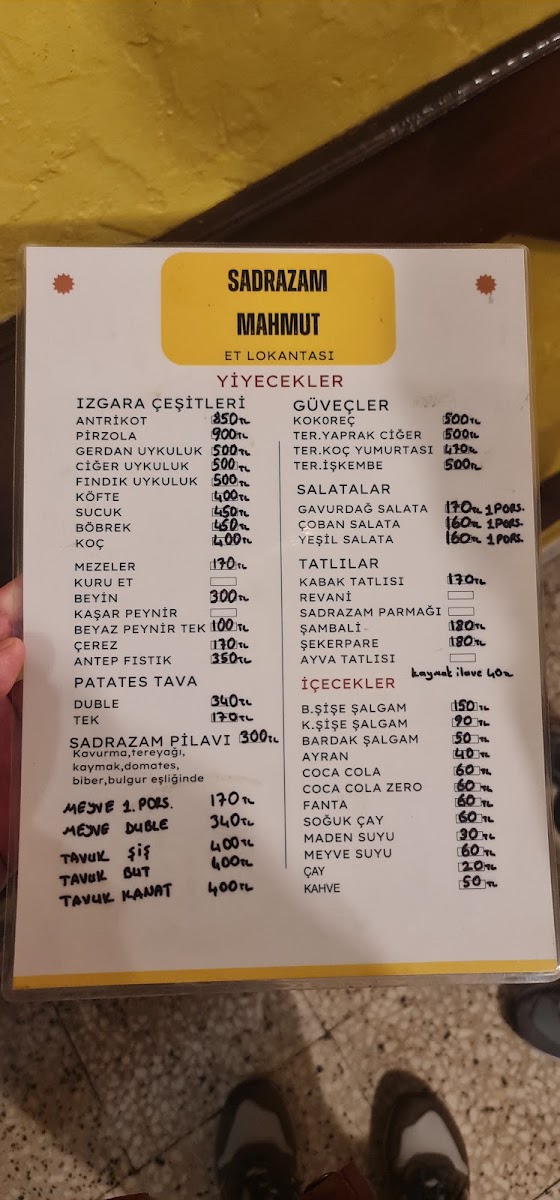 SADRAZAM
MAHMUT
ET LOKANTASI
YİYECEKLER
IZGARA ÇEŞİTLERİ
ANTRİKOT 850TL
PİRZOLA 900TL
GERDAN UYKULUK 500TL
CİĞER UYKULUK 500TL
FINDIK UYKULUK 500TL
KÖFTE 400TL
SUCUK 450TL
BÖBREK 450TL
KOÇ 400TL
MEZELER 170TL
KURU ET
BEYİN 300TL
KAŞAR PEYNİR
BEYAZ PEYNİR TEK 100TL
ÇEREZ 170TL
ANTEP FISTIK 350TL
PATATES TAVA
DUBLE 340TL
TEK 170TL
SADRAZAM PİLAVI 300TL
Kavurma,tereyağı,
kaymak,domates,
biber,bulgur eşliğinde
MEYVE 1.PORS. 170TL
MEYVE DUBLE 340TL
TAVUK ŞİŞ 400TL
TAVUK BUT 400TL
TAVUK KANAT 400TL
GÜVEÇLER
KOKOREÇ 500TL
TER.YAPRAK CİĞER 500TL
TER.KOÇ YUMURTASI 470TL
TER.İŞKEMBE 500TL
SALATALAR
GAVURDAĞ SALATA 170TL 1PORS.
ÇOBAN SALATA 160TL 1PORS.
YEŞİL SALATA 160TL 1PORS.
TATLILAR
KABAK TATLISI 170TL
REVANİ
SADRAZAM PARMAĞI
ŞAMBALİ 180TL
ŞEKERPARE 180TL
AYVA TATLISI
kaymak ilave 40TL
İÇECEKLER
B.ŞİŞE ŞALGAM 150TL
K.ŞİŞE ŞALGAM 90TL
BARDAK ŞALGAM 50TL
AYRAN 40TL
COCA COLA 60TL
COCA COLA ZERO 60TL
FANTA 60TL
SOĞUK ÇAY 60TL
MADEN SUYU 30TL
MEYVE SUYU 60TL
ÇAY 20TL
KAHVE 50TL